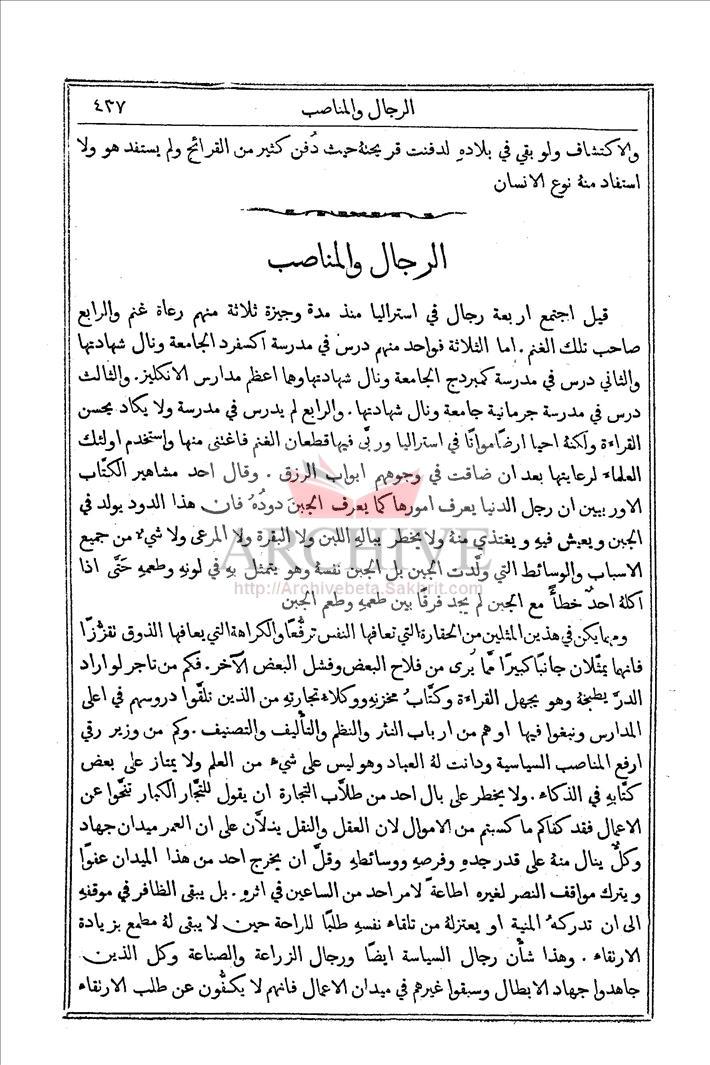 الرجال والمناصب ٤٣٧
والاكتشاف ولو بقي في بلادهِ لدفنت قريحتهُ حيث دُفن كثير من القرائح ولم يستفد هو ولا
استفاد منهُ نوع الانسان
الرجال والمناصب
قيل اجتمع اربعة رجال في استراليا منذ مدة وجيزة ثلاثة منهم رعاة غنم والرابع
صاحب تلك الغنم . اما الثلاثة فواحد منهم درس في مدرسة اكسفرد الجامعة ونال شهادتها
والثاني درس في مدرسة كمبردج الجامعة ونال شهادتها وهما اعظم مدارس الانكليز . والثالث
درس في مدرسة جرمانية جامعة ونال شهادتها . والرابع لم يدرس في مدرسة ولا يكاد يحسن
القراءة ولكنهُ احيا ارضًا مواتًا في استراليا وربَّى فيها قطعان الغنم فاغتنى منها واستخدم اولئك
العلماء لرعايتها بعد ان ضاقت في وجوههم ابواب الرزق . وقال احد مشاهير الكتّاب
الاوربيين ان رجل الدنيا يعرف امورها كما يعرف الجبنَ دودُهُ فان هذا الدود يولد في
الجبن ويعيش فيهِ ويغتذي منهُ ولا يخطر ببالهِ اللبن ولا البقرة ولا المرعى ولا شيءٌ من جميع
ARCHIVE
الاسباب والوسائط التي ولَّدت الجبن بل الجبن نفسهُ وهو يتمثل بهِ في لونهِ وطعمهِ حَتَّى اذا
http://Archivebeta.Sakhrit.com
اكلهُ احدٌ خطأً مع الجبن لم يجد فرقًا بين طعمهِ وطعم الجبن
ومهما يكن في هذين المثلين من الحقارة التي تعافها النفس ترفُّعًا والكراهة التي يعافها الذوق تقزُّزًا
فانهما يمثّلان جانبًا كبيرًا ممَّا يُرى من فلاح البعض وفشل البعض الآخر . فكم من تاجر لو اراد
الدرَّ يطبخهُ وهو يجهل القراءة وكتّابُ مخزنهِ ووكلاءُ تجارتهِ من الذين تلقَّوا دروسهم في اعلى
المدارس ونبغوا فيها او هم من ارباب النثر والنظم والتأليف والتصنيف . وكم من وزير رقي
ارفع المناصب السياسية ودانت لهُ العباد وهو ليس على شيءٍ من العلم ولا يمتاز على بعض
كتّابهِ في الذكاء . ولا يخطر على بال احد من طلاَّب التجارة ان يقول للتجَّار الكبار تنحَّوا عن
الاعمال فقد كفاكم ما كسبتم من الاموال لان العقل والنقل يدلاَّن على ان العمر ميدان جهاد
وكلٌّ ينال منهُ على قدر جدهِ وفرصهِ ووسائطهِ وقلَّ ان يخرج احد من هذا الميدان عفوًا
ويترك مواقف النصر لغيره اطاعةً لامر احد من الساعين في اثرهِ . بل يبقى الظافر في موقفهِ
الى ان تدركهُ المنية او يعتزلهُ من تلقاء نفسهِ طلبًا للراحة حين لا يبقى لهُ مطمع بزيادة
الارتقاء . وهذا شأن رجال السياسة ايضًا ورجال الزراعة والصناعة وكل الذين
جاهدوا جهاد الابطال وسبقوا غيرهم في ميدان الاعمال فانهم لا يكفُّون عن طلب الارتقاء